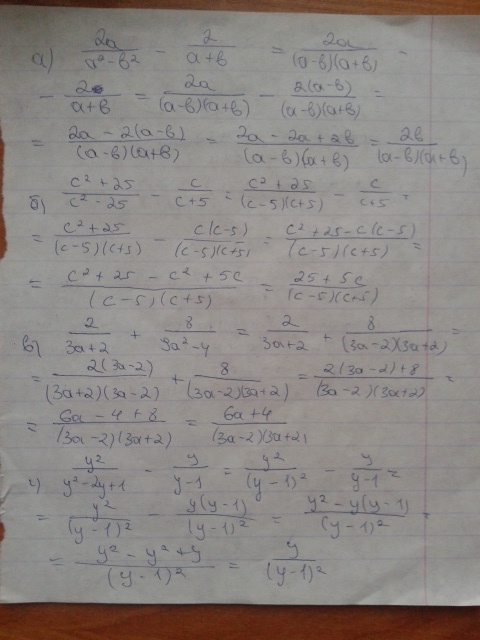 а) 2a/(a² - в²) - 2/(a+в) = 2a/((a-в)(a+в)) -
- 2/(a+в) = 2a/((a-в)(a+в)) - 2(a-в)/((a-в)(a+в)) =
= (2a - 2(a-в))/((a-в)(a+в)) = (2a - 2a + 2в)/((a-в)(a+в)) = 2в/((a-в)(a+в))
б) (c² + 25)/(c² - 25) - c/(c+5) = (c² + 25)/((c-5)(c+5)) - c/(c+5) =
= (c² + 25)/((c-5)(c+5)) - c(c-5)/((c-5)(c+5)) = (c² + 25 - c(c-5))/((c-5)(c+5)) =
= (c² + 25 - c² + 5c)/((c-5)(c+5)) = (25 + 5c)/((c-5)(c+5))
в) 2/(3a+2) + 8/(9a²-4) = 2/(3a+2) + 8/((3a-2)(3a+2)) =
= 2(3a-2)/((3a+2)(3a-2)) + 8/((3a-2)(3a+2)) = (2(3a-2)+8)/((3a-2)(3a+2)) =
= (6a - 4 + 8)/((3a-2)(3a+2)) = (6a+4)/((3a-2)(3a+2))
г) y²/(y²-2y+1) - y/(y-1) = y²/(y-1)² - y/(y-1) =
= y²/(y-1)² - y(y-1)/(y-1)² = (y² - y(y-1))/(y-1)² =
= (y² - y² + y)/(y-1)² = y/(y-1)²